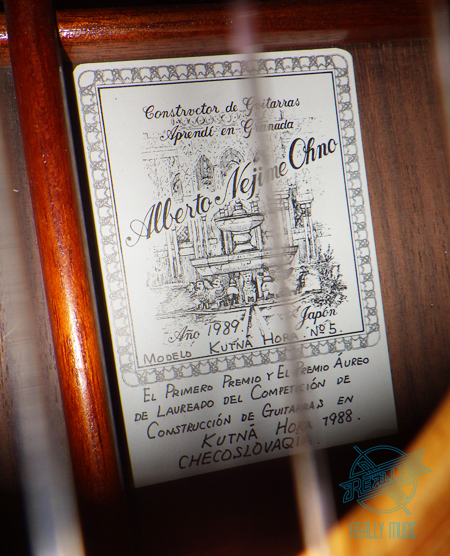 Constructor de Guitarras
Aprendí en Granada
Alberto Nejime Ohno
Año 1989. Japón
MODELO KUTNÁ HORA. Nº 5.
EL PRIMERO PREMIO Y EL PREMIO ÁUREO
DE LAUREADO DEL COMPETICIÓN DE
CONSTRUCCIÓN DE GUITARRAS EN
KUTNÁ HORA 1988.
CHECOSLOVAQUIA.
REALLY MUSIC